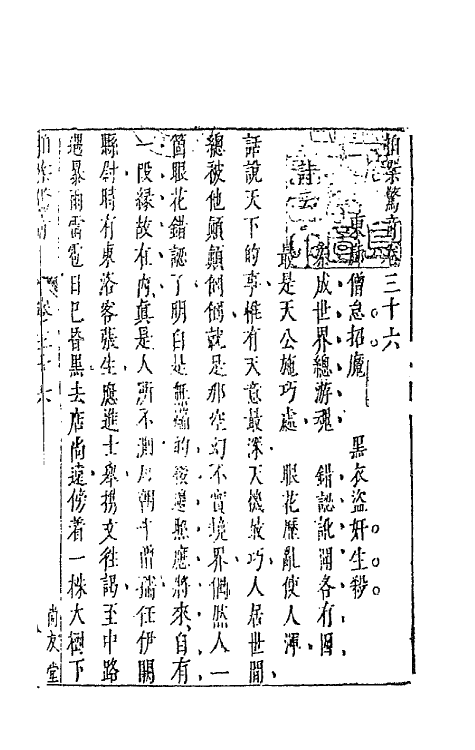 拍案驚奇卷三十六
東廊僧怠招魔　黑衣盜奸生殺
詩云
參成世界總游魂　錯認訛聞各有因
最是天公施巧處　眼花歷亂使人渾
話說天下的事惟有天意最深天機最巧人居世間
總被他顛顛倒倒就是那空幻不實境界偶然人一
箇眼花錯認了明白是無端的後邊照應將來自有
一段緣故在內真是人所不測唐朝牛僧孺任伊闕
縣尉時有東洛客張生應進士舉携文往謁至中路
遇暴雨雷雹日已昏黑去店尚遠傍着一株大樹下
拍案驚奇　卷三十六　尚友堂